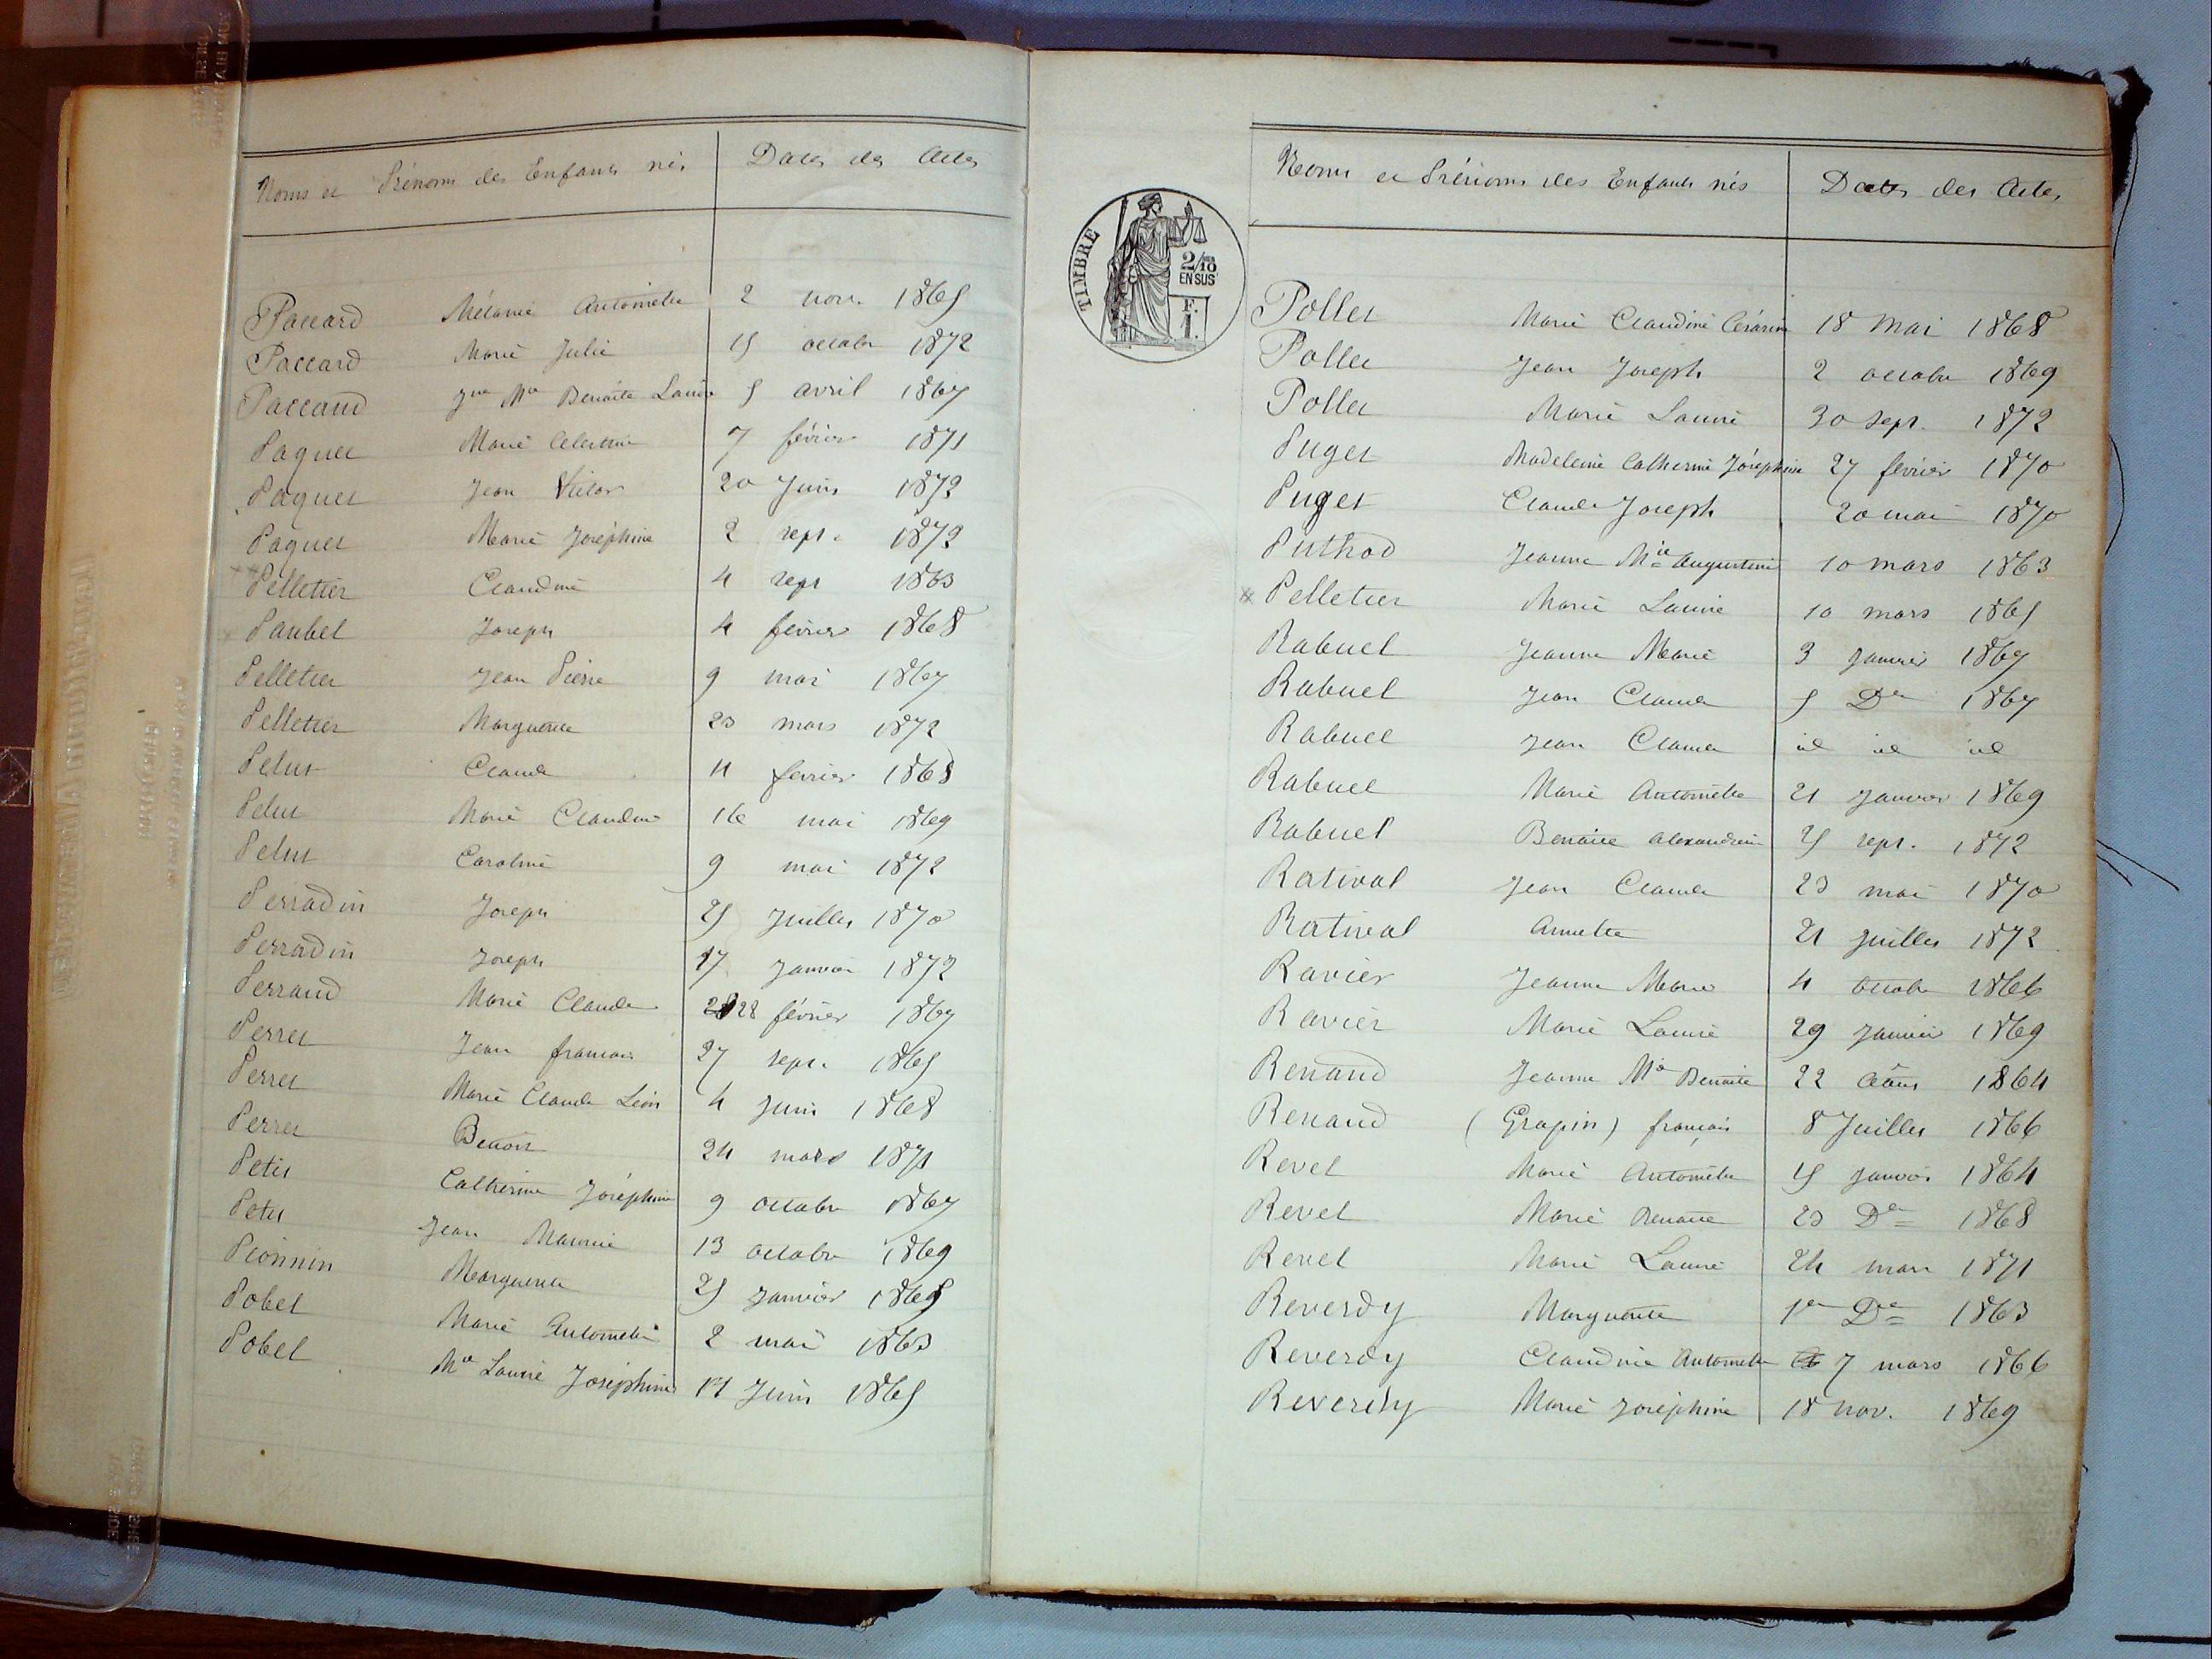 Noms et Prénoms des Enfants nés Dates des Actes
Paccard Mélanie Antoinette 2 nov. 1865
Paccard Marie Julie 15 octobre 1872
Paccand Jne Mie Benoîte Louise 5 avril 1867
Paquet Marie Célestine 7 février 1871
Paquet Jean Victor 20 Juin 1872
Paquet Marie Joséphine 2 sept. 1872
Pelletier Claudine 4 sept 1863
Paubel Joseph 4 février 1868
Pelletier Jean Pierre 9 mai 1867
Pelletier Marguerite 23 mars 1872
Pelus Claude 11 février 1868
Pelus Marie Claudine 16 mai 1869
Pelus Caroline 9 mai 1872
Perradin Joseph 25 Juillet 1870
Perradin Joseph 17 Janvier 1872
Perraud Marie Claude 28 février 1867
Perret Jean françois 27 sept. 1865
Perret Marie Claude Léon 4 Juin 1868
Perret Benoit 24 mars 1871
Petit Catherine Joséphine 9 octobre 1867
Petit Jean Marie 13 octobre 1869
Pionnin Marguerite 25 Janvier
Pobel Marie Antoinette 2 mai 1863
Pobel Mie Louise Joséphine 17 Juin 1865
TIMBRE
2/10
EN SUS
F.
1.
Noms et Prénoms des Enfants nés Dates des Actes
Pollet Marie Claudine Césarine 18 Mai 1868
Pollet Jean Joseph 2 octobre 1869
Pollet Marie Louise 30 sept. 1872
Puget Madeleine Catherine Joséphine 27 février 1870
Puget Claude Joseph 20 mai 1870
Puthod Jeanne Mie Augustine 10 mars 1863
Pelletier Marie Louise 10 mars 1865
Rabuel Jeanne Marie 3 Janvier 1867
Rabuel Jean Claude 5 De 1867
Rabuel Jean Claude id id id
Rabuel Marie Antoinette 21 Janvier 1869
Rabuel Benoite Alexandrine 25 sept. 1872
Rativat Jean Claude 23 mai 1870
Rativat Annette 21 Juillet 1872
Ravier Jeanne Marie 4 octobre 1866
Ravier Marie Louise 29 Janvier 1869
Renaud Jeanne Mie Benoite 22 août 1864
Renaud (Grapin) françois 8 Juillet 1866
Revel Marie Antoinette 15 Janvier 1864
Revel Marie Benoite 23 De 1868
Revel Marie Louise 24 mars 1871
Reverdy Marguerite 1er De 1863
Reverdy Claudine Antoinette 7 mars 1866
Reverdy Marie Joséphine 18 nov. 1869